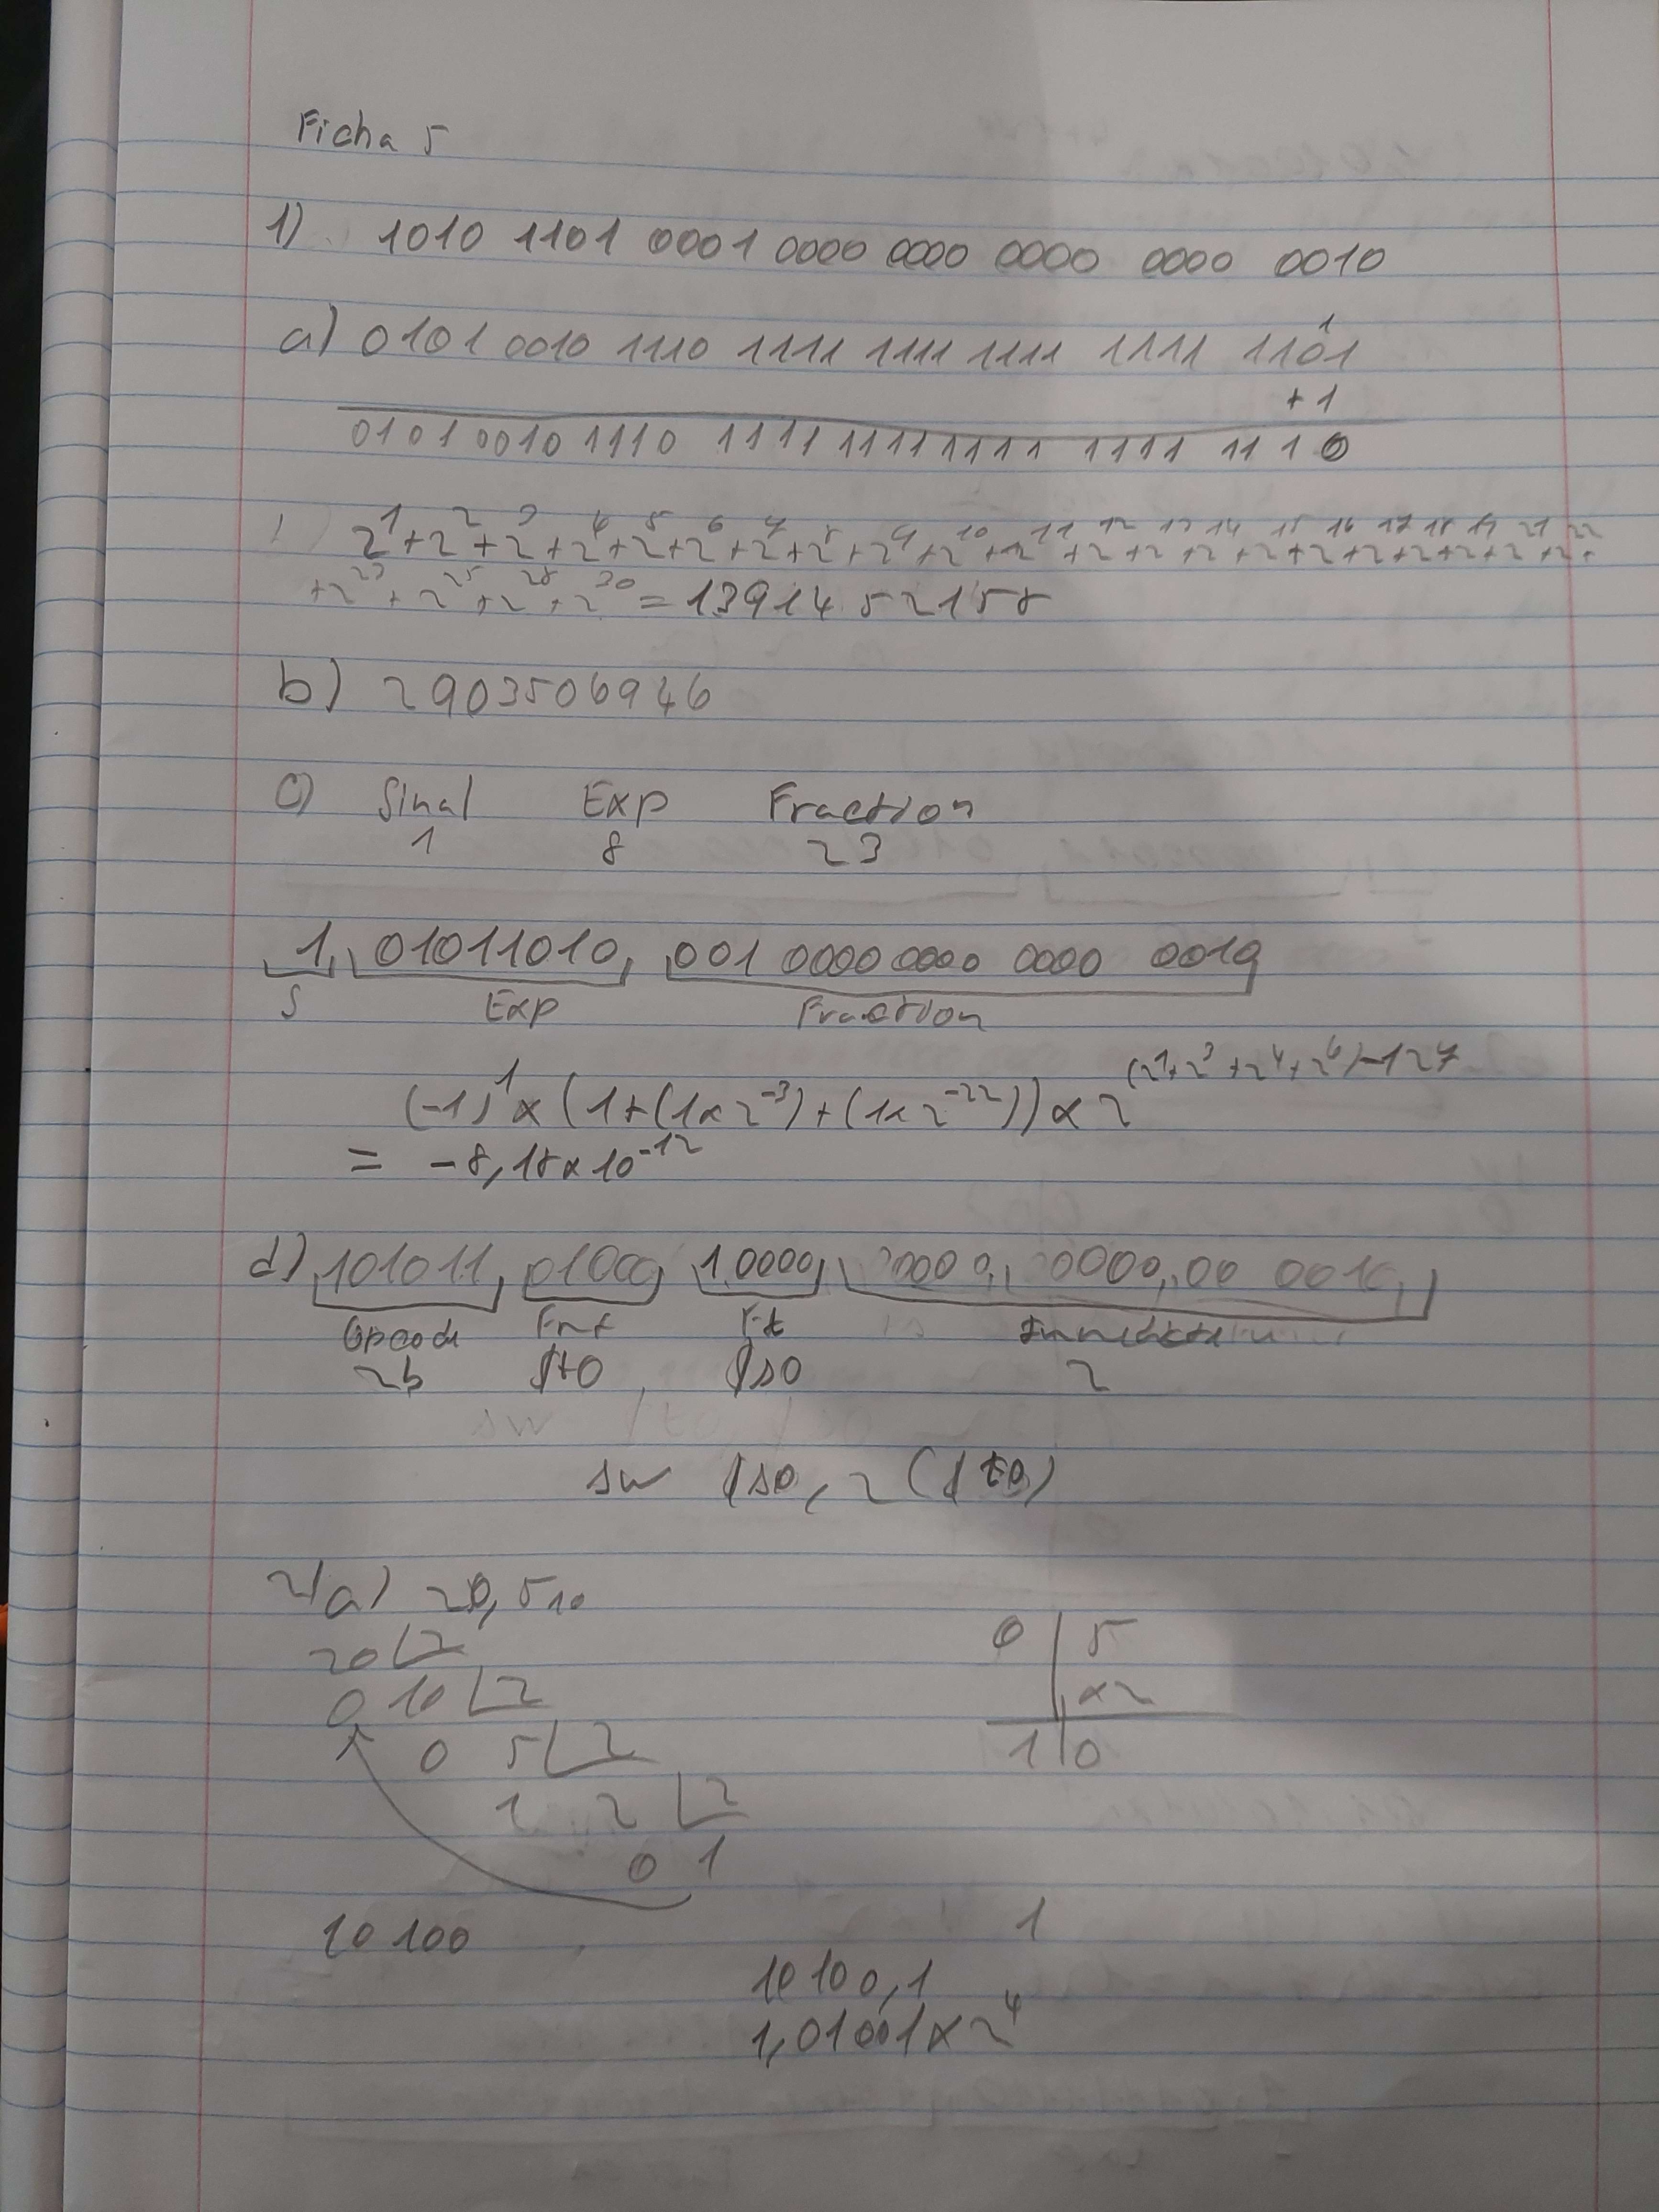 Ficha 5
1) 1010 1101 0001 0000 0000 0000 0000 0010
1
a) 0101 0010 1110 1111 1111 1111 1111 1101
+1
0101 0010 1110 1111 1111 1111 1111 1110
2^1+2^2+2^3+2^4+2^5+2^6+2^7+2^8+2^9+2^10+2^11+2^12+2^13+2^14+2^15+2^16+2^17+2^18+2^19+2^21+2^22+
+2^23+2^25+2^28+2^30=1391452158
b) 2903506946
c) Sinal Exp Fraction
1 8 23
1 01011010 001 0000 0000 0000 0010
S Exp Fraction
(-1)^1 × (1+(1×2^-3)+(1×2^-22)) × 2^(2^1+2^3+2^4+2^6)-127
= -8,18×10^-12
d) 101011 01000 1 0000 0000 0000 00 0010
Opcode
2b $t0, $s0 2
sw $s0, 2($t0)
2)a) 20,5₁₀
20 2 0 5
0 10 2 ×2
0 5 2 1 0
1 2 2
0 1
10100 1
10100,1
1,01001×2^4